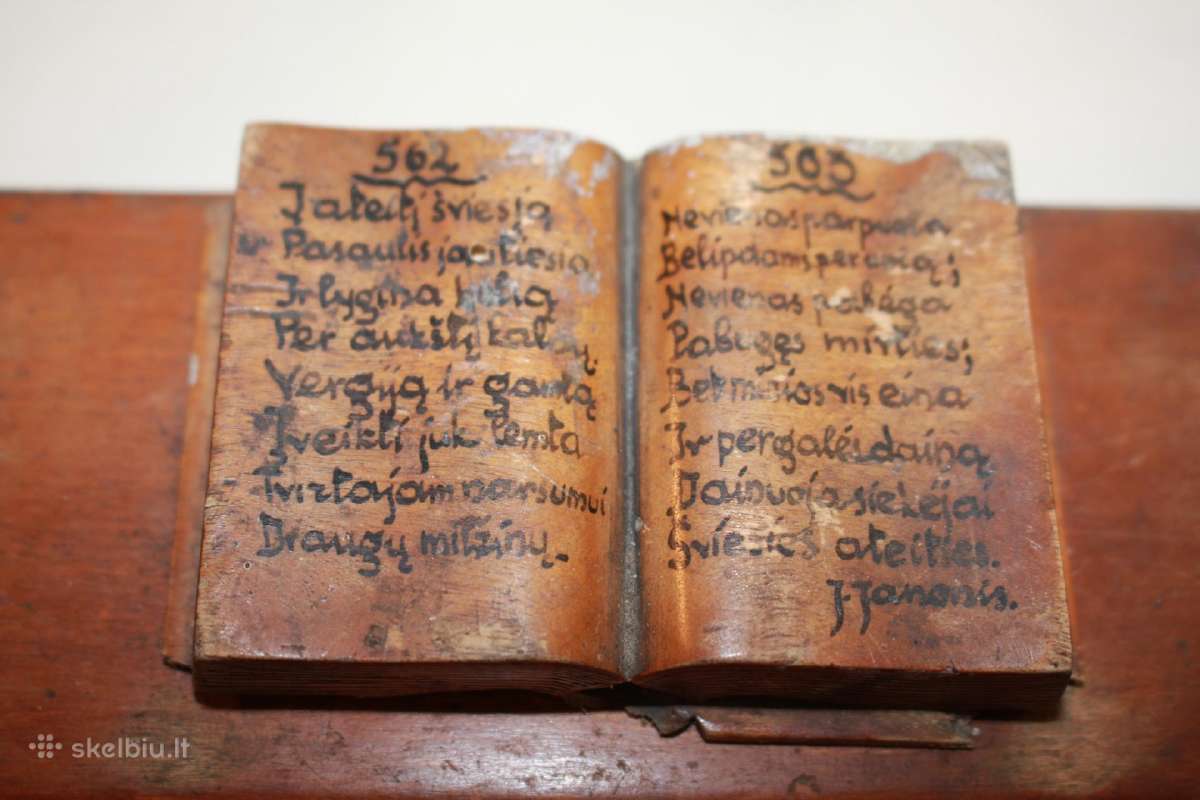 562
Į ateitį šviesią
Pasaulis jau tiesią
Ir lygina kelią
Per aukštų kalnų.
Vergiją ir gantą
Įveikti juk lemta
Tvirtajam narsumui
Draugų milžinų.
503
Nevienas parpuola
Belipdams per uolą;
Nevienas pabėga
Pabūgęs mirties;
Bet minios vis eina
Ir pergalės dainą
Jaibuoja siekėjai
Šviesios ateities.
J. Janonis.
skelbiu.lt